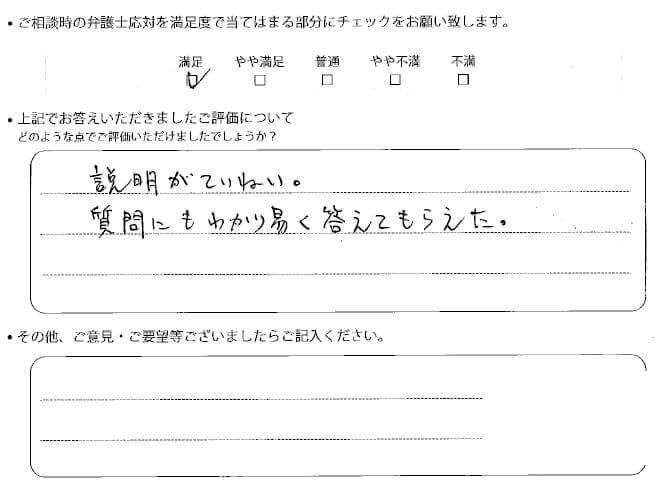 ・ご相談時の弁護士応対を満足度で当てはまる部分にチェックをお願い致します。
満足 やや満足 普通 やや不満 不満
・上記でお答えいただきましたご評価について
どのような点でご評価いただけましたでしょうか？
説明がていねい。
質問にもわかり易く答えてもらえた。
・その他、ご意見・ご要望等ございましたらご記入ください。